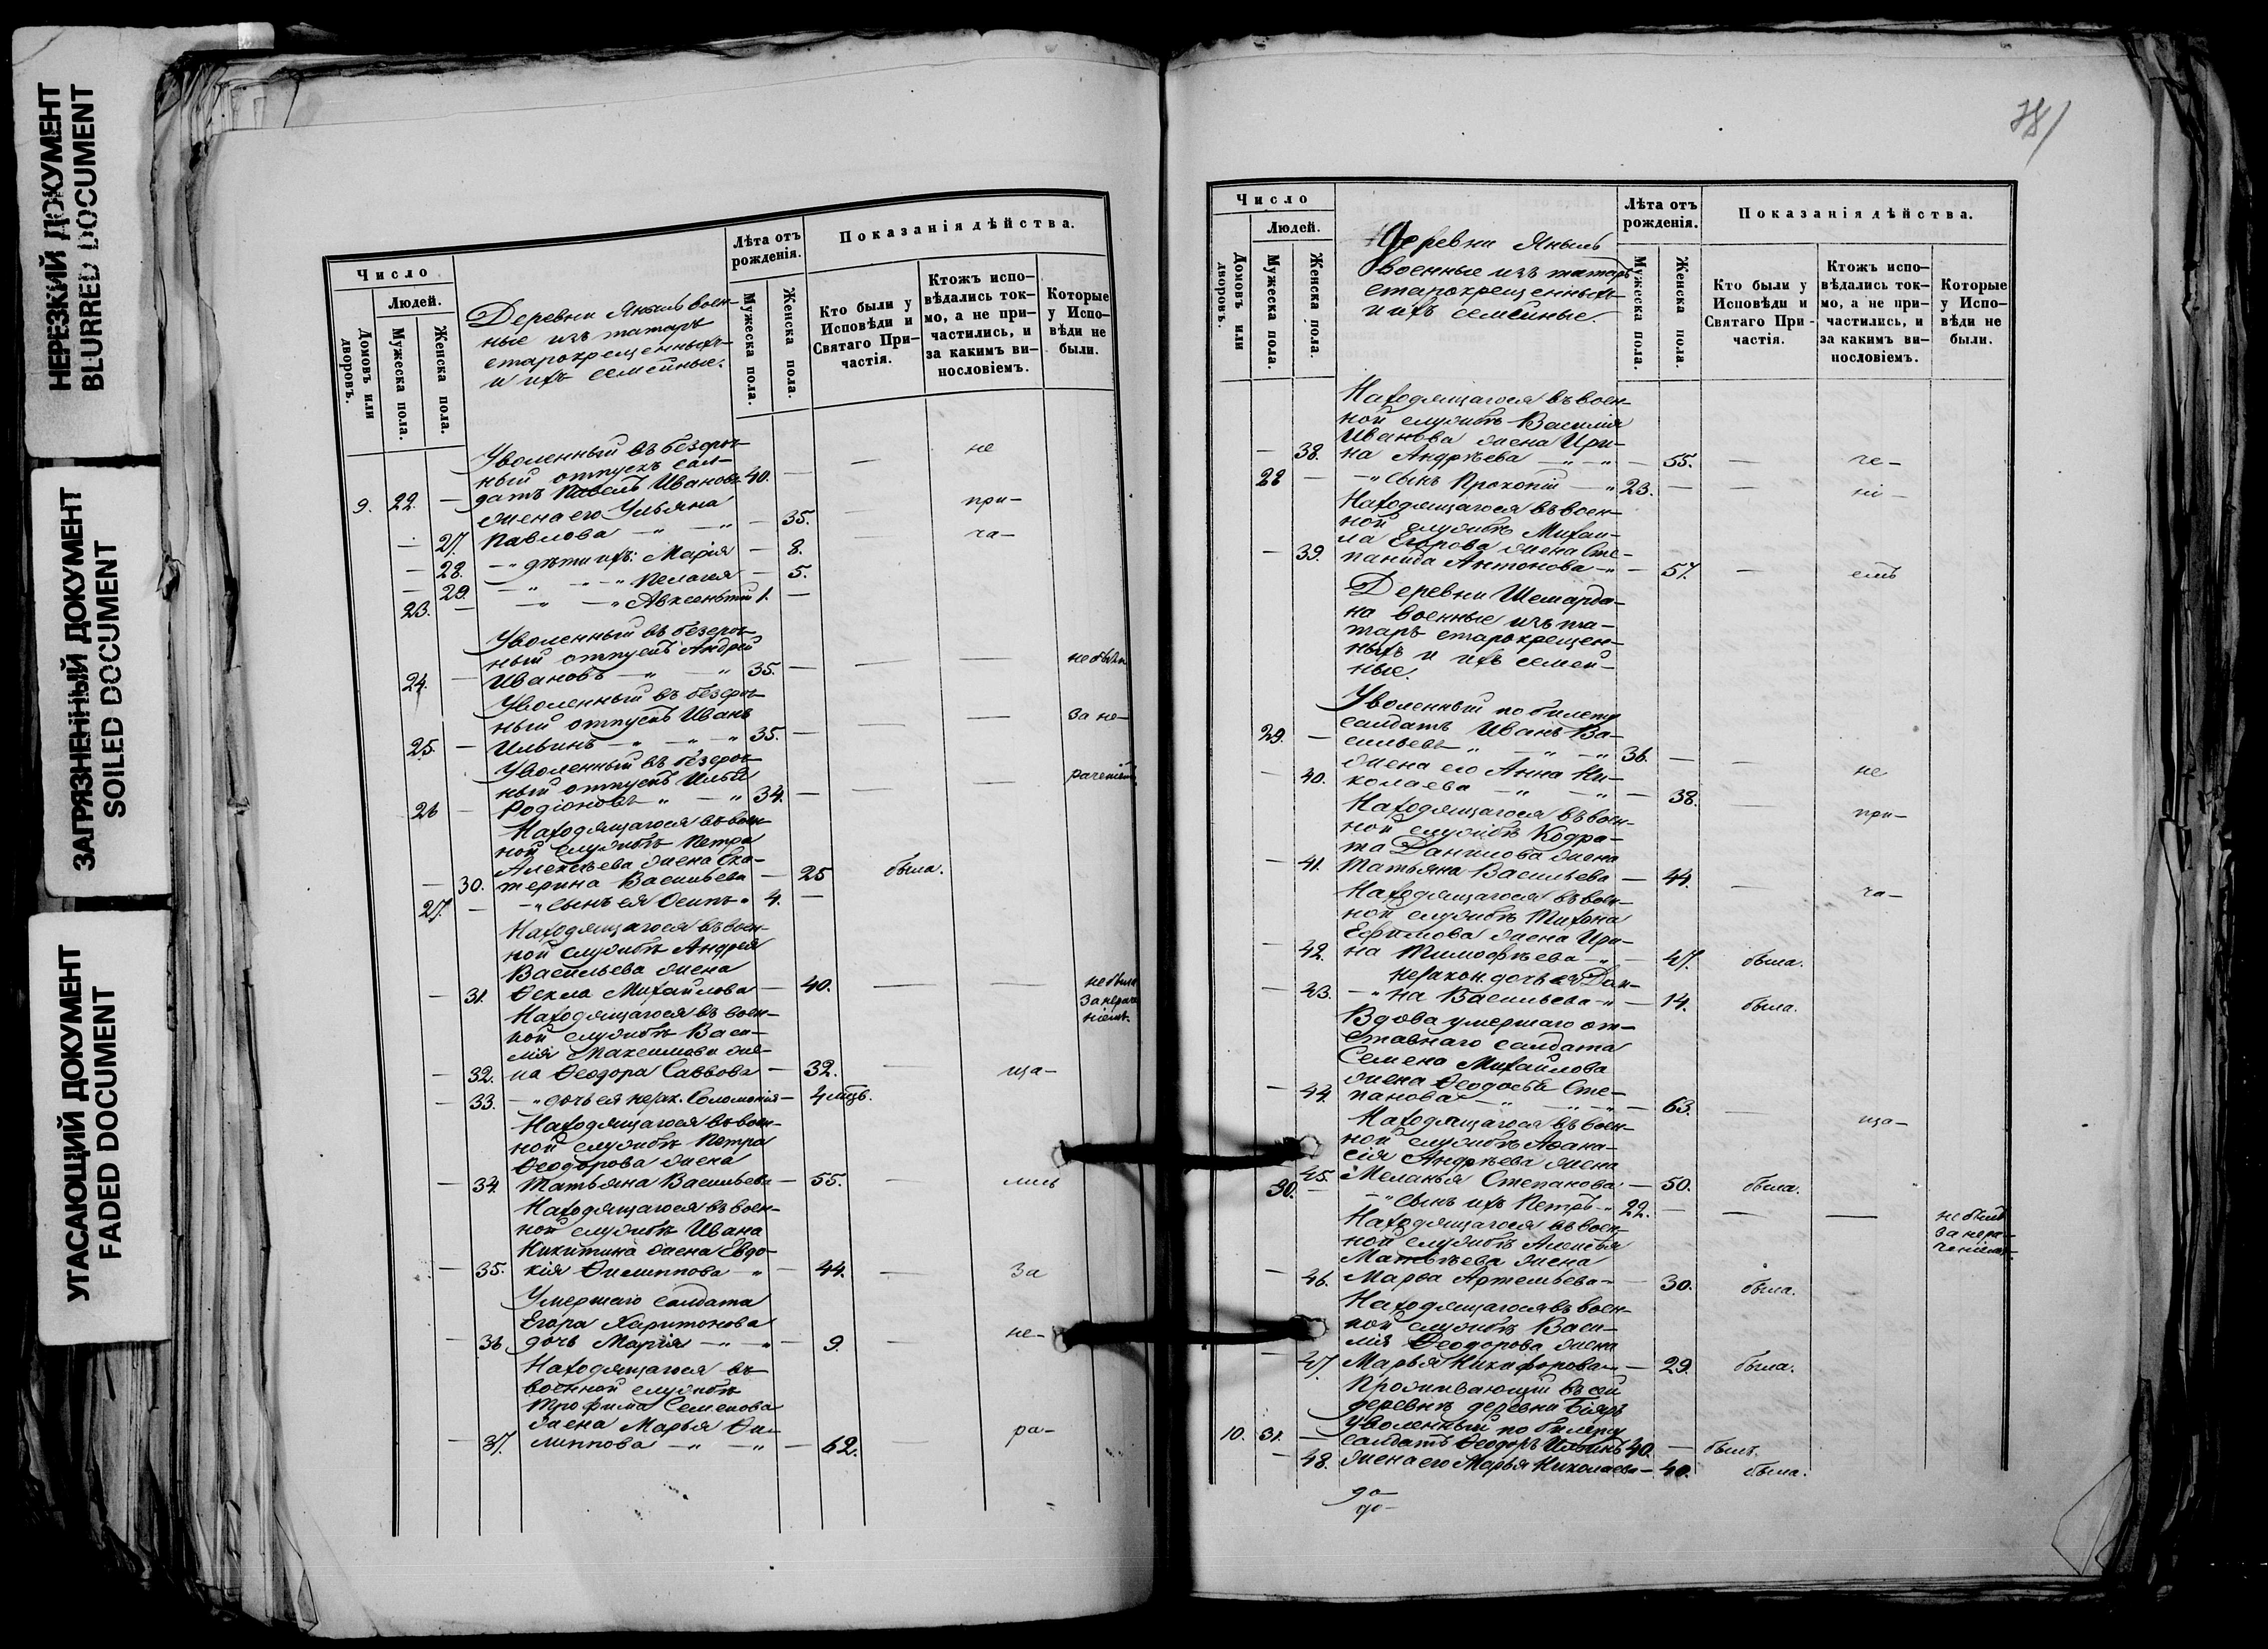 НЕРЕЗКИЙ ДОКУМЕНТ
BLURRED DOCUMENT
ЗАГРЯЗНЕННЫЙ ДОКУМЕНТ
SOILED DOCUMENT
УГАСАЮЩИЙ ДОКУМЕНТ
FADED DOCUMENT
Число
Людей.
Домовъ или дворовъ.
Мужеска пола.
Женска пола.
Деревни Яныль воен-
ные изъ татаръ
старокрещенныхъ
и ихъ семейные.
Лѣта отъ рожденія.
Мужеска пола.
Женска пола.
Показанія дѣйства.
Кто были у Исповѣди и Святаго При-частія.
Ктожъ испо-вѣдались ток-мо, а не при-частились, и за какимъ ви-нословіемъ.
Которые у Испо-вѣди не были.
Уволенный въ безсроч-
ный отпускъ сол- не
9. 22. — датъ Павелъ Ивановъ 40. — —
жена его Ульяна при-
— 27. Павлова — 35. —
— 28. дѣти ихъ: Марія — 8. ча-
— 29. Пелагея — 5.
23. — Авксентій 1. —
Уволенный въ безсроч-
ный отпускъ Андрей
24. — Ивановъ 35. — — — не были
Уволенный въ безсроч-
ный отпускъ Иванъ
25. — Ильинъ 35. — — — за не-
Уволенный въ безсроч-
ный отпускъ Илья
26 — Родіоновъ 34. — — — раченіемъ
Находящагося въ воен-
ной службѣ Петра
Алексѣева жена Ека-
— 30. терина Васильева — 25 была.
27. — сынъ ея Осипъ 4. —
Находящагося въ воен-
ной службѣ Андрея
Васильева жена
— 31. Ѳекла Михайлова — 40. — — не была
за нераче
ніемъ.
Находящагося въ воен-
ной службѣ Васи-
лія Максимова же-
— 32. на Ѳеодора Саввова — 32. — ща-
— 33. дочь ея незак. Соломонія — 4 мцѣ.
Находящагося въ воен-
ной службѣ Петра
Ѳеодорова жена
— 34. Татьяна Васильева — 55. — лись
Находящагося въ воен-
ной службѣ Ивана
Никитина жена Евдо-
— 35. кія Филиппова — 44. — за
Умершаго солдата
Егора Харитонова
— 36 дочь Марія — 9. — не-
Находящагося въ
военной службѣ
Трофима Семенова
жена Марья Фи-
— 37. липпова — 62. ра-
Число
Людей.
Домовъ или дворовъ.
Мужеска пола.
Женска пола.
Деревни Яныль
военные изъ татаръ
старокрещенныхъ
и ихъ семейные.
Лѣта отъ рожденія.
Мужеска пола.
Женска пола.
Показанія дѣйства.
Кто были у Исповѣди и Святаго При-частія.
Ктожъ испо-вѣдались ток-мо, а не при-частились, и за какимъ ви-нословіемъ.
Которые у Испо-вѣди не были.
Находящагося въ воен-
ной службѣ Василія
Иванова жена Ири-
— 38. на Андрѣева — 55. — че-
28 — сынъ Прокопій 23. — — ні-
Находящагося въ воен-
ной службѣ Михаи-
ла Егорова жена Сте-
— 39. панида Антонова — 57. — емъ
Деревни Шемарда-
на военные изъ та-
таръ старокрещен-
ныхъ и ихъ семей-
ные.
Уволенный по билету
солдатъ Иванъ Ва-
29. — сильевъ 36. — —
жена его Анна Ни- не
— 40. колаева — 38. —
Находящагося въ воен- при-
ной службѣ Кодра-
та Данилова жена
— 41. Татьяна Васильева — 44. —
Находящагося въ воен- ча-
ной службѣ Тихона
Ефимова жена Ири-
— 42. на Тимофѣева — 47. была.
незакон. дочь ея Дан-
— 43. на Васильева — 14. была.
Вдова умершаго от-
ставнаго солдата
Семена Михайлова
жена Ѳеодосья Сте-
— 44. панова — 63. —
Находящагося въ воен- ща-
ной службѣ Аѳана-
сія Андрѣева жена
45. Меланья Степанова — 50. была.
30. — сынъ ихъ Петръ 22. — — — не былъ
за нера-
ченіемъ.
Находящагося въ воен-
ной службѣ Алексѣя
Матвѣева жена
— 46. Марѳа Артемьева — 30. была.
Находящагося въ воен-
ной службѣ Васи-
лія Ѳеодорова жена
— 47. Марья Никифорова — 29. была.
Проживающій въ сей
деревнѣ деревни Бияръ
уволенный по билету
10. 31. — солдатъ Ѳеодоръ Ильинъ 40. — былъ.
— 48. жена его Марья Николаева — 40. была.
до-
до-